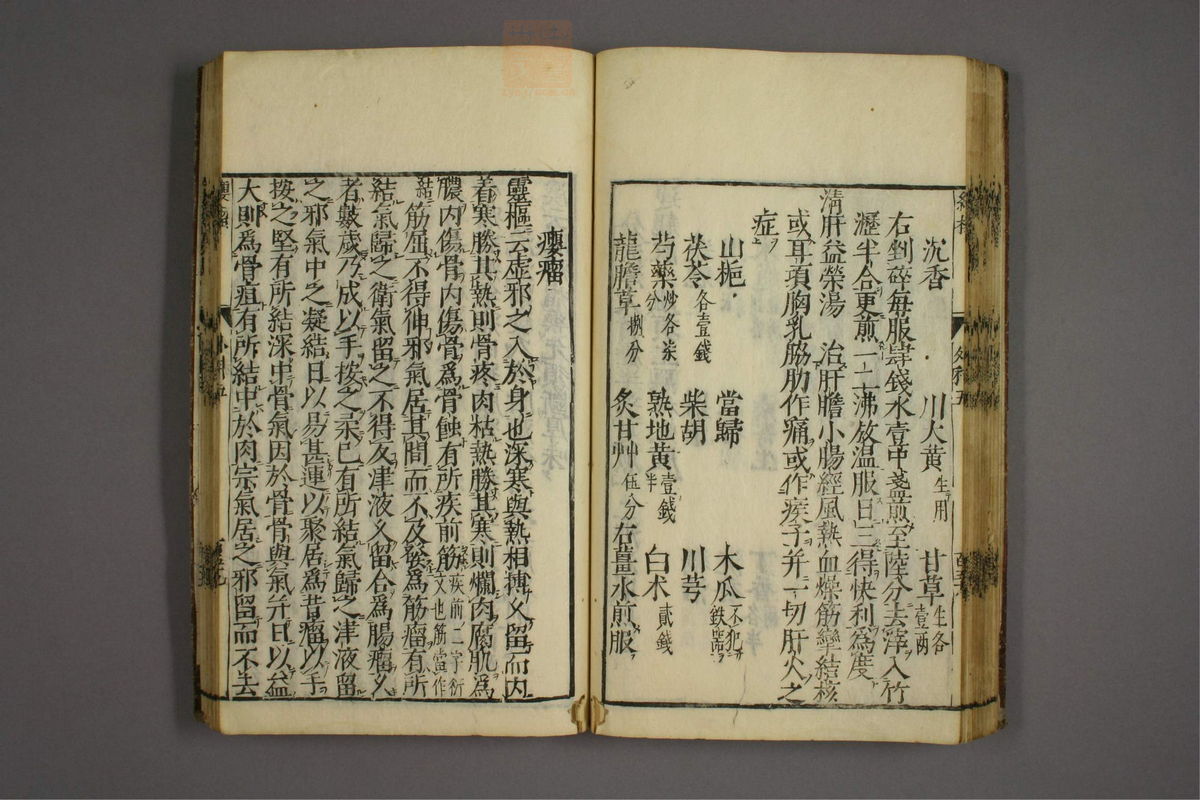 沉香 川大黃生用 甘草生各壹兩
右剉碎每服肆錢水壹中盞煎至陸分去滓入竹
瀝半合更煎一二沸放温服日三得快利爲度
清肝益榮湯 治肝膽小腸經風熱血燥筋攣結核
或耳項胸乳脇肋作痛或作疾子并一切肝火之
症
山梔 當歸 木瓜不犯鉄器
茯苓各壹錢 柴胡 川芎
芍藥炒各柒分 熟地黃壹錢半 白朮貳錢
龍膽草捌分 炙甘艸伍分 右薑水煎服
癭瘤
靈樞云虛邪之入於身也深寒與熱相摶乆留而内
着寒勝其熱則骨疼肉枯熱勝其寒則爛肉腐肌爲
膿内傷骨内傷骨爲骨蝕有所疾前筋疾前二字衍文也筋當作結
筋屈不得伸邪氣居其間而不及發爲筋瘤有所
結氣歸之衛氣留之不得反津液乆留合爲腸瘤乆
者數歲乃成以手按之柔已有所結氣歸之津液留
之邪氣中之凝結日以易甚連以聚居爲昔瘤以手
按之堅有所結深中骨氣因於骨骨與氣并日以益
大則爲骨疽有所結中於肉宗氣居之邪留而不去